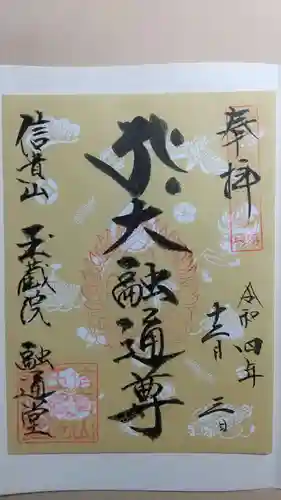 奉拝
令和四年
十二月 二日
大融通尊
信貴山 玉蔵院 融通堂